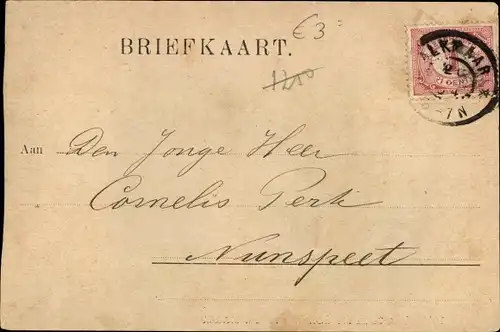 €3
BRIEFKAART.
1250
ALKMAAR
1 CENT
-7N
Aan Den Jonge Heer
Cornelis Perk
Nunspeet